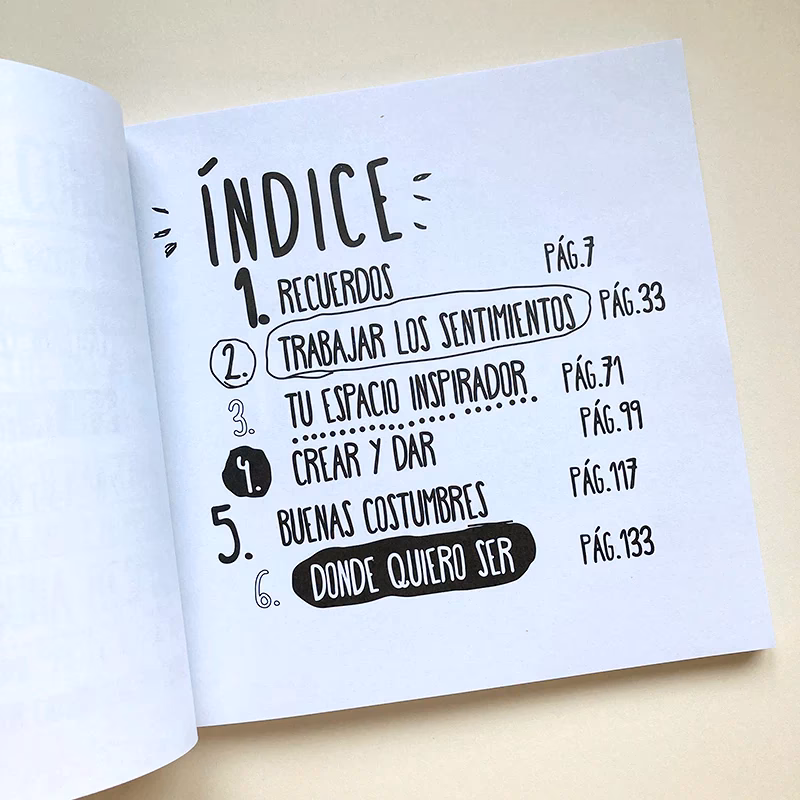 ÍNDICE
1. RECUERDOS PÁG.7
2. TRABAJAR LOS SENTIMIENTOS PÁG.33
3. TU ESPACIO INSPIRADOR PÁG.71
4. CREAR Y DAR PÁG.99
5. BUENAS COSTUMBRES PÁG.117
6. DONDE QUIERO SER PÁG.133